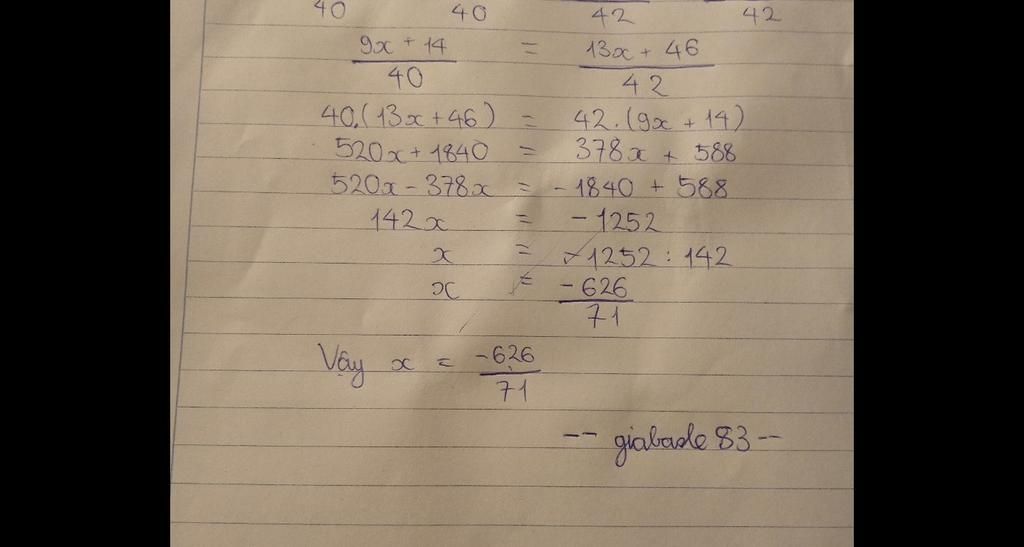 40 40 42 42
9x + 14 = 13x + 46
40 42
40.(13x+46) = 42.(9x + 14)
520x + 1840 = 378x + 588
520x - 378x = - 1840 + 588
142x = - 1252
x = - 1252 : 142
x = -626
71
Vậy x = -626
71
-- giabaole 83 --